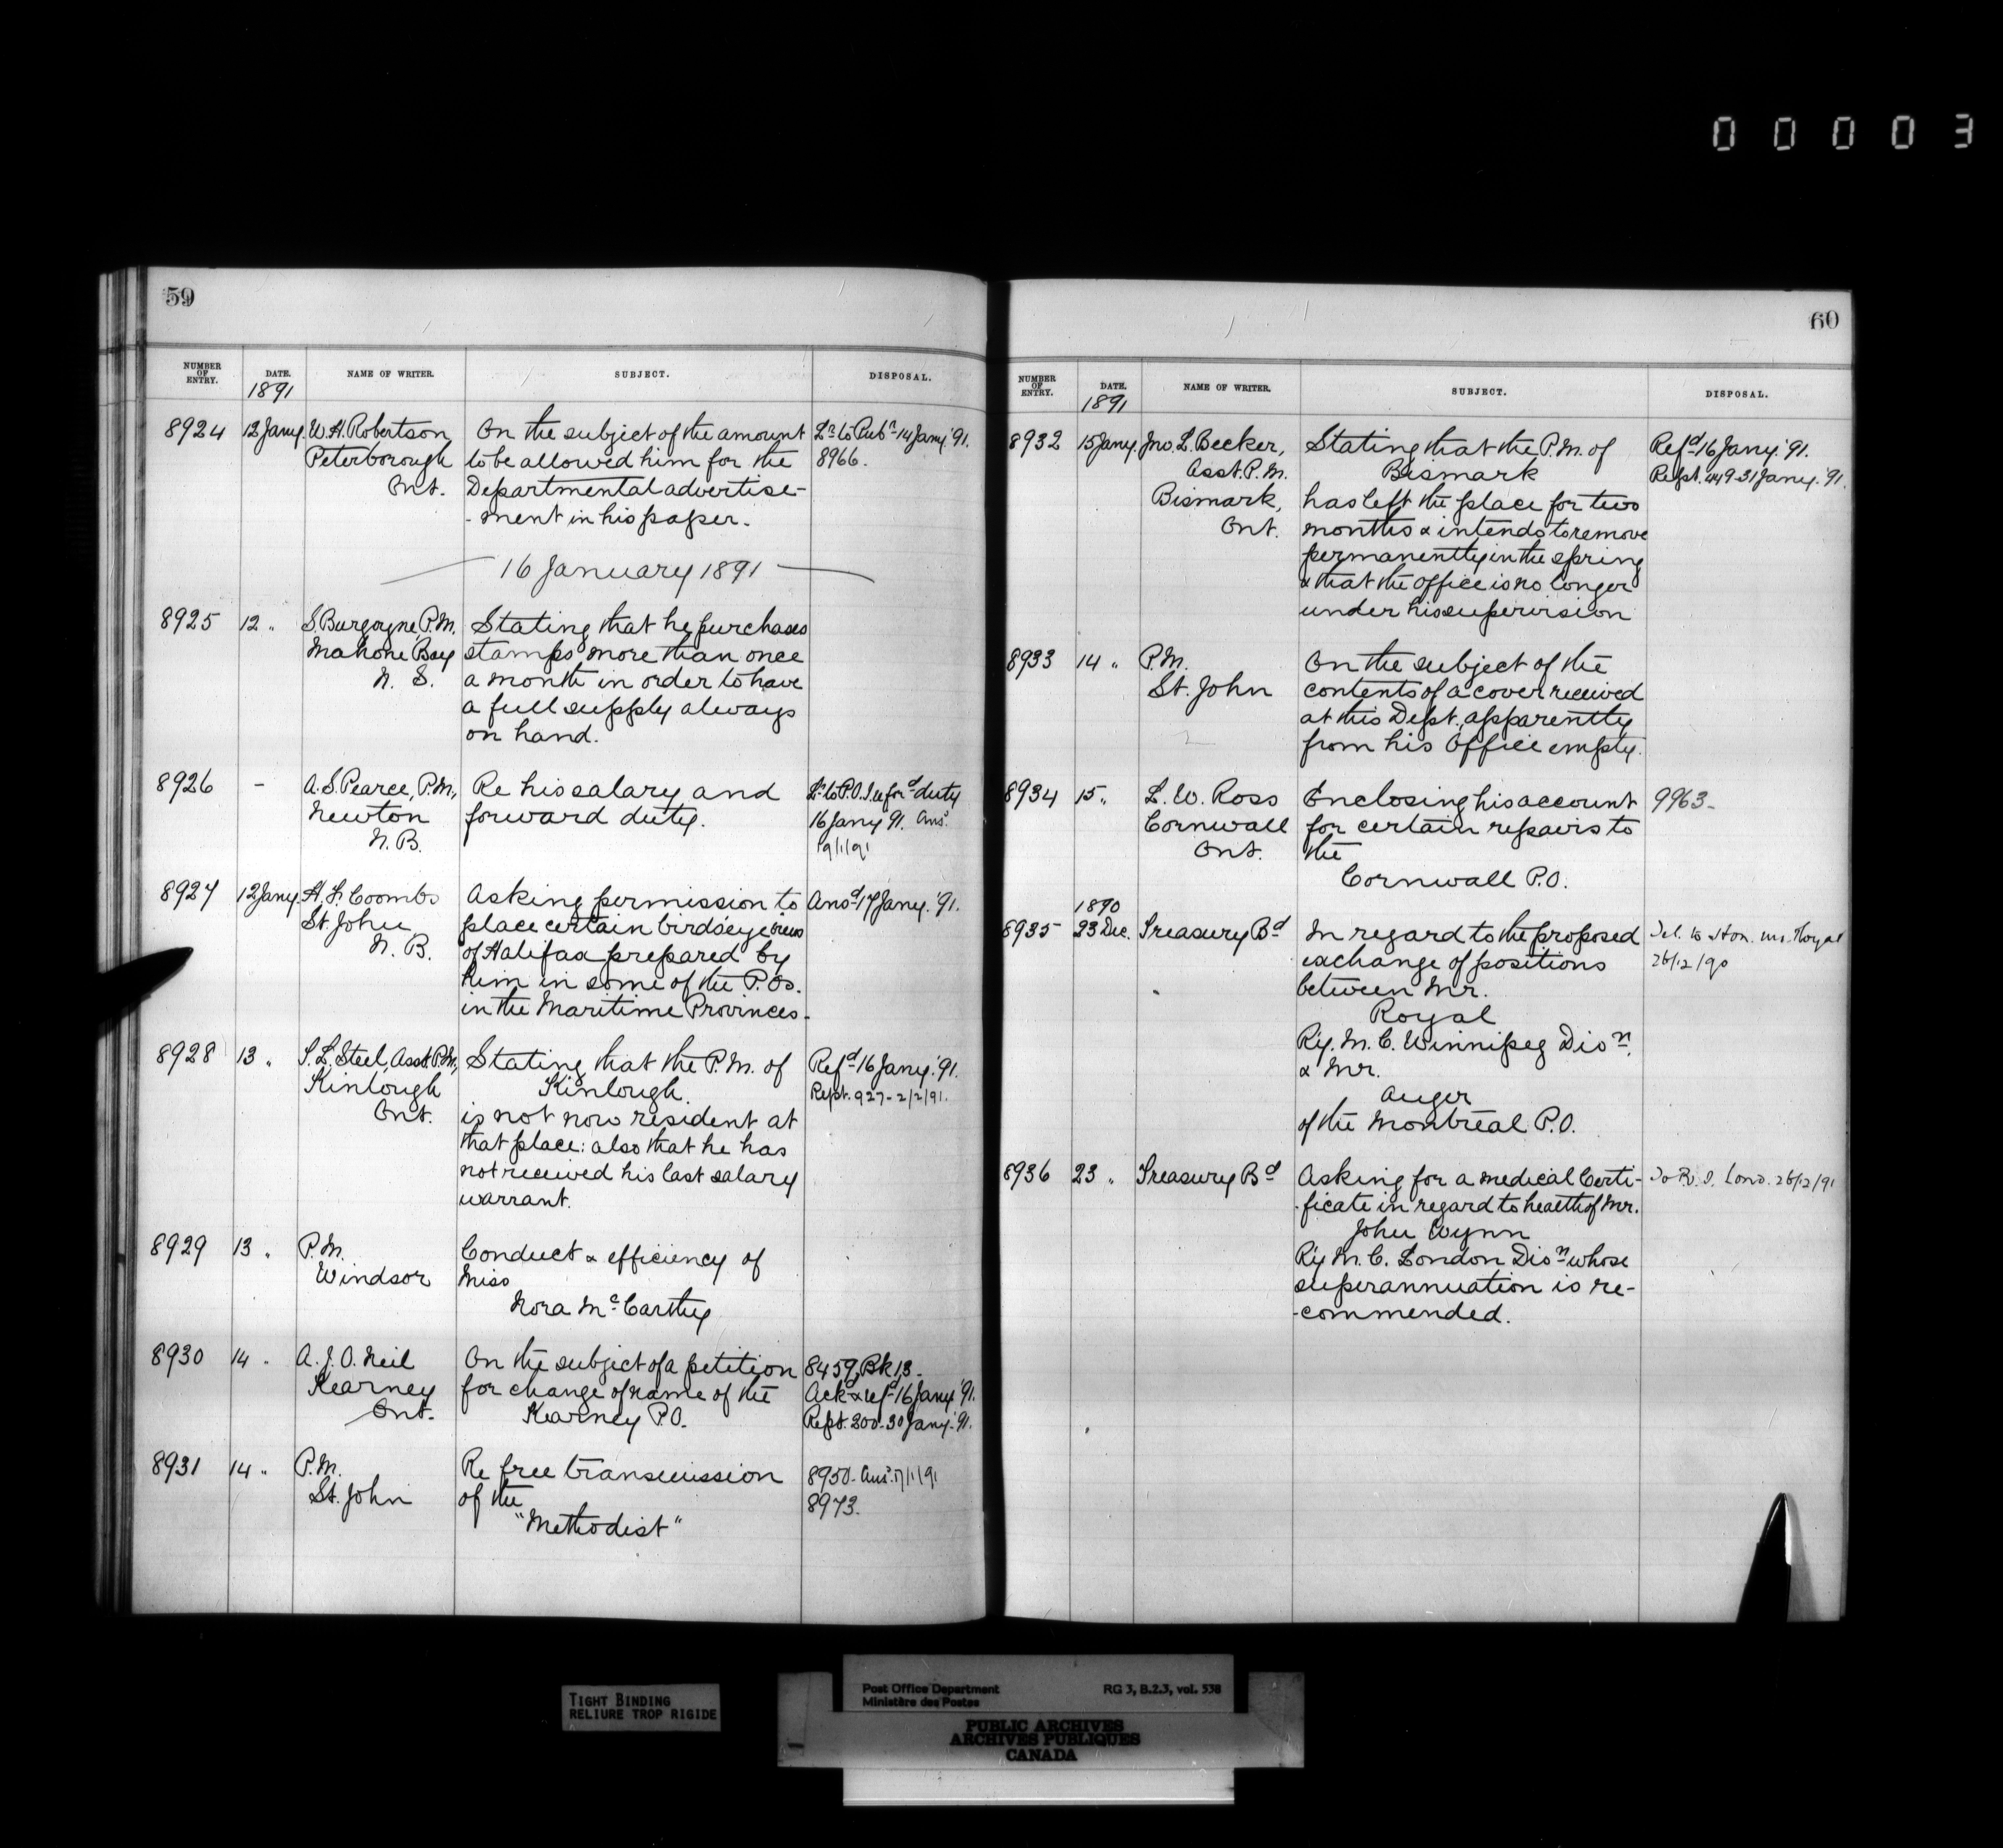 00003
59
NUMBER OF ENTRY. DATE. NAME OF WRITER. SUBJECT. DISPOSAL.
1891
8924 12 Jany. W. H. Robertson, On the subject of the amount Lr. to Pubr. 14 Jany. '91.
Peterborough to be allowed him for the 8966.
Ont. Departmental advertise-
-ment in his paper.
16 January 1891
8925 12 " S. Burgoyne, P.M. Stating that he purchases
Mahone Bay stamps more than once
N. S. a month in order to have
a full supply always
on hand.
8926 - A. S. Pearce, P.M., Re his salary and Lr. to P.O.I. re ford duty
Newton forward duty. 16 Jany 91. Ans.
N. B. 19/1/91
8927 12 Jany. H. F. Coombs Asking permission to Ansd 17 Jany. '91.
St. John place certain birdseye views
N. B. of Halifax prepared by
him in some of the P.Os.
in the Maritime Provinces.
8928 13 " S. L. Steel, Asst. P.M., Stating that the P.M. of Refd 16 Jany. '91.
Kinlough Kinlough. Rept. 927 - 2/2/91.
Ont. is not now resident at
that place: also that he has
not received his last salary
warrant.
8929 13 " P.M. Conduct & efficiency of
Windsor Miss
Nora McCarthy
8930 14 " A. J. O. Neil On the subject of a petition 8459, Bk 13.
Kearney for change of name of the Ackd & refd 16 Jany '91.
Ont. Kearney P.O. Rept. 200. 30 Jany. '91.
8931 14 " P.M. Re free transmission 8950. Ans. 17/1/91
St. John of the 8973.
"Methodist"
60
NUMBER OF ENTRY. DATE. NAME OF WRITER. SUBJECT. DISPOSAL.
1891
8932 15 Jany. Jno. L. Becker, Stating that the P.M. of Refd 16 Jany. '91.
Asst. P.M. Bismark Rept. 449 - 31 Jany. '91.
Bismark, has left the place for two
Ont. months & intends to remove
permanently in the spring
& that the office is no longer
under his supervision
8933 14 " P.M. On the subject of the
St. John contents of a cover received
at this Dept. apparently
from his Office empty.
8934 15 " L. W. Ross Enclosing his account 9963-
Cornwall for certain repairs to
Ont. the
Cornwall P.O.
1890
8935 23 Dec. Treasury Bd In regard to the proposed Tel. to Hon. Mr. Royal
exchange of positions 26/12/90
between Mr.
Royal
Ry. M. C. Winnipeg Disn.
& Mr.
Auger
of the Montreal P.O.
8936 23 " Treasury Bd Asking for a medical Certi- To P.O.I. Lond. 26/12/91
-ficate in regard to health of Mr.
John Wynn
Ry M. C. London Disn whose
superannuation is re-
-commended.
TIGHT BINDING
RELIURE TROP RIGIDE
Post Office Department RG 3, B.2.3, vol. 538
Ministère des Postes
PUBLIC ARCHIVES
ARCHIVES PUBLIQUES
CANADA